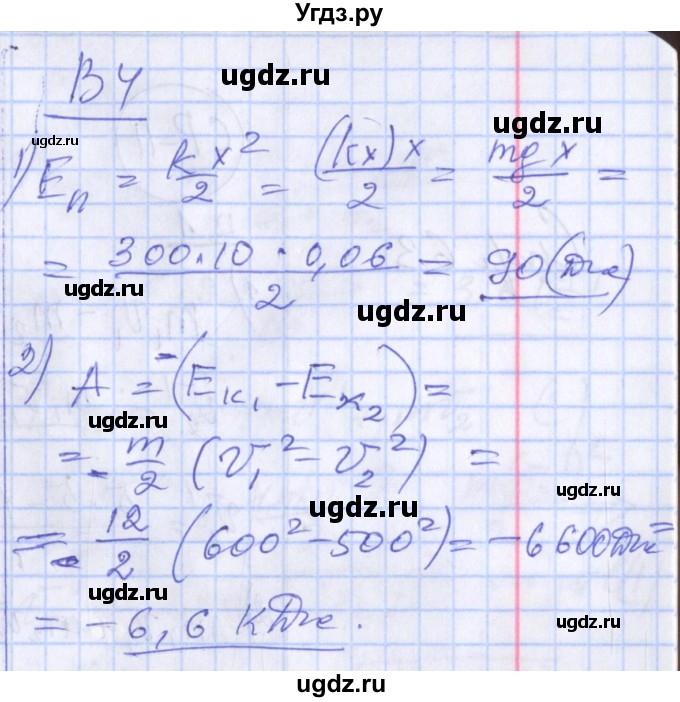 Угдз.ру
ugdz.ru
В4
ugdz.ru
1) Eп = kx²/2 = (kx)x/2 = mgx/2 =
ugdz.ru
= 300·10·0,06/2 = 90 (Дж)
ugdz.ru
ugdz.ru
2) A = -(Eк₁ - Eк₂) =
ugdz.ru
= - m/2 (V₁² - V₂²) =
ugdz.ru
ugdz.ru
= - 12/2 (600² - 500²) = -6600Дж =
ugdz.ru
= -6,6 кДж.
ugdz.ru
ugdz.ru
ugdz.ru